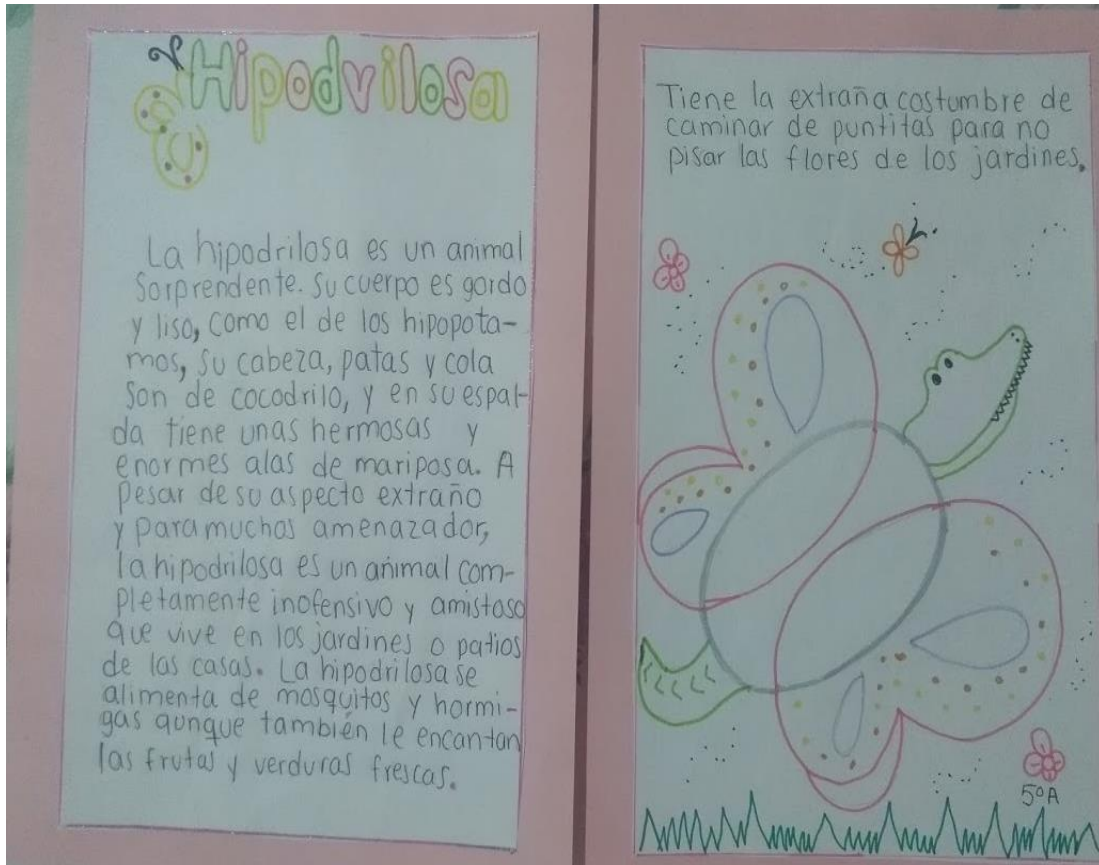 Hipodvilosa
La hipodrilosa es un animal
Sorprendente. Su cuerpo es gordo
y liso, como el de los hipopota-
mos, su cabeza, patas y cola
son de cocodrilo, y en su espal-
da tiene unas hermosas y
enormes alas de mariposa. A
pesar de su aspecto extraño
y para muchos amenazador,
la hipodrilosa es un animal com-
pletamente inofensivo y amistoso
que vive en los jardines o patios
de las casas. La hipodrilosa se
alimenta de mosquitos y hormi-
gas aunque también le encantan
las frutas y verduras frescas.
Tiene la extraña costumbre de
caminar de puntitas para no
pisar las flores de los jardines.
5°A